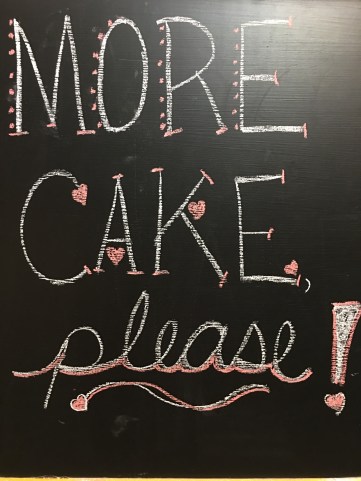 MORE
CAKE,
please!